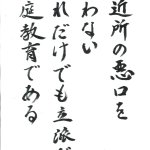 近所の悪口を
わない
れだけでも立派な
庭教育である